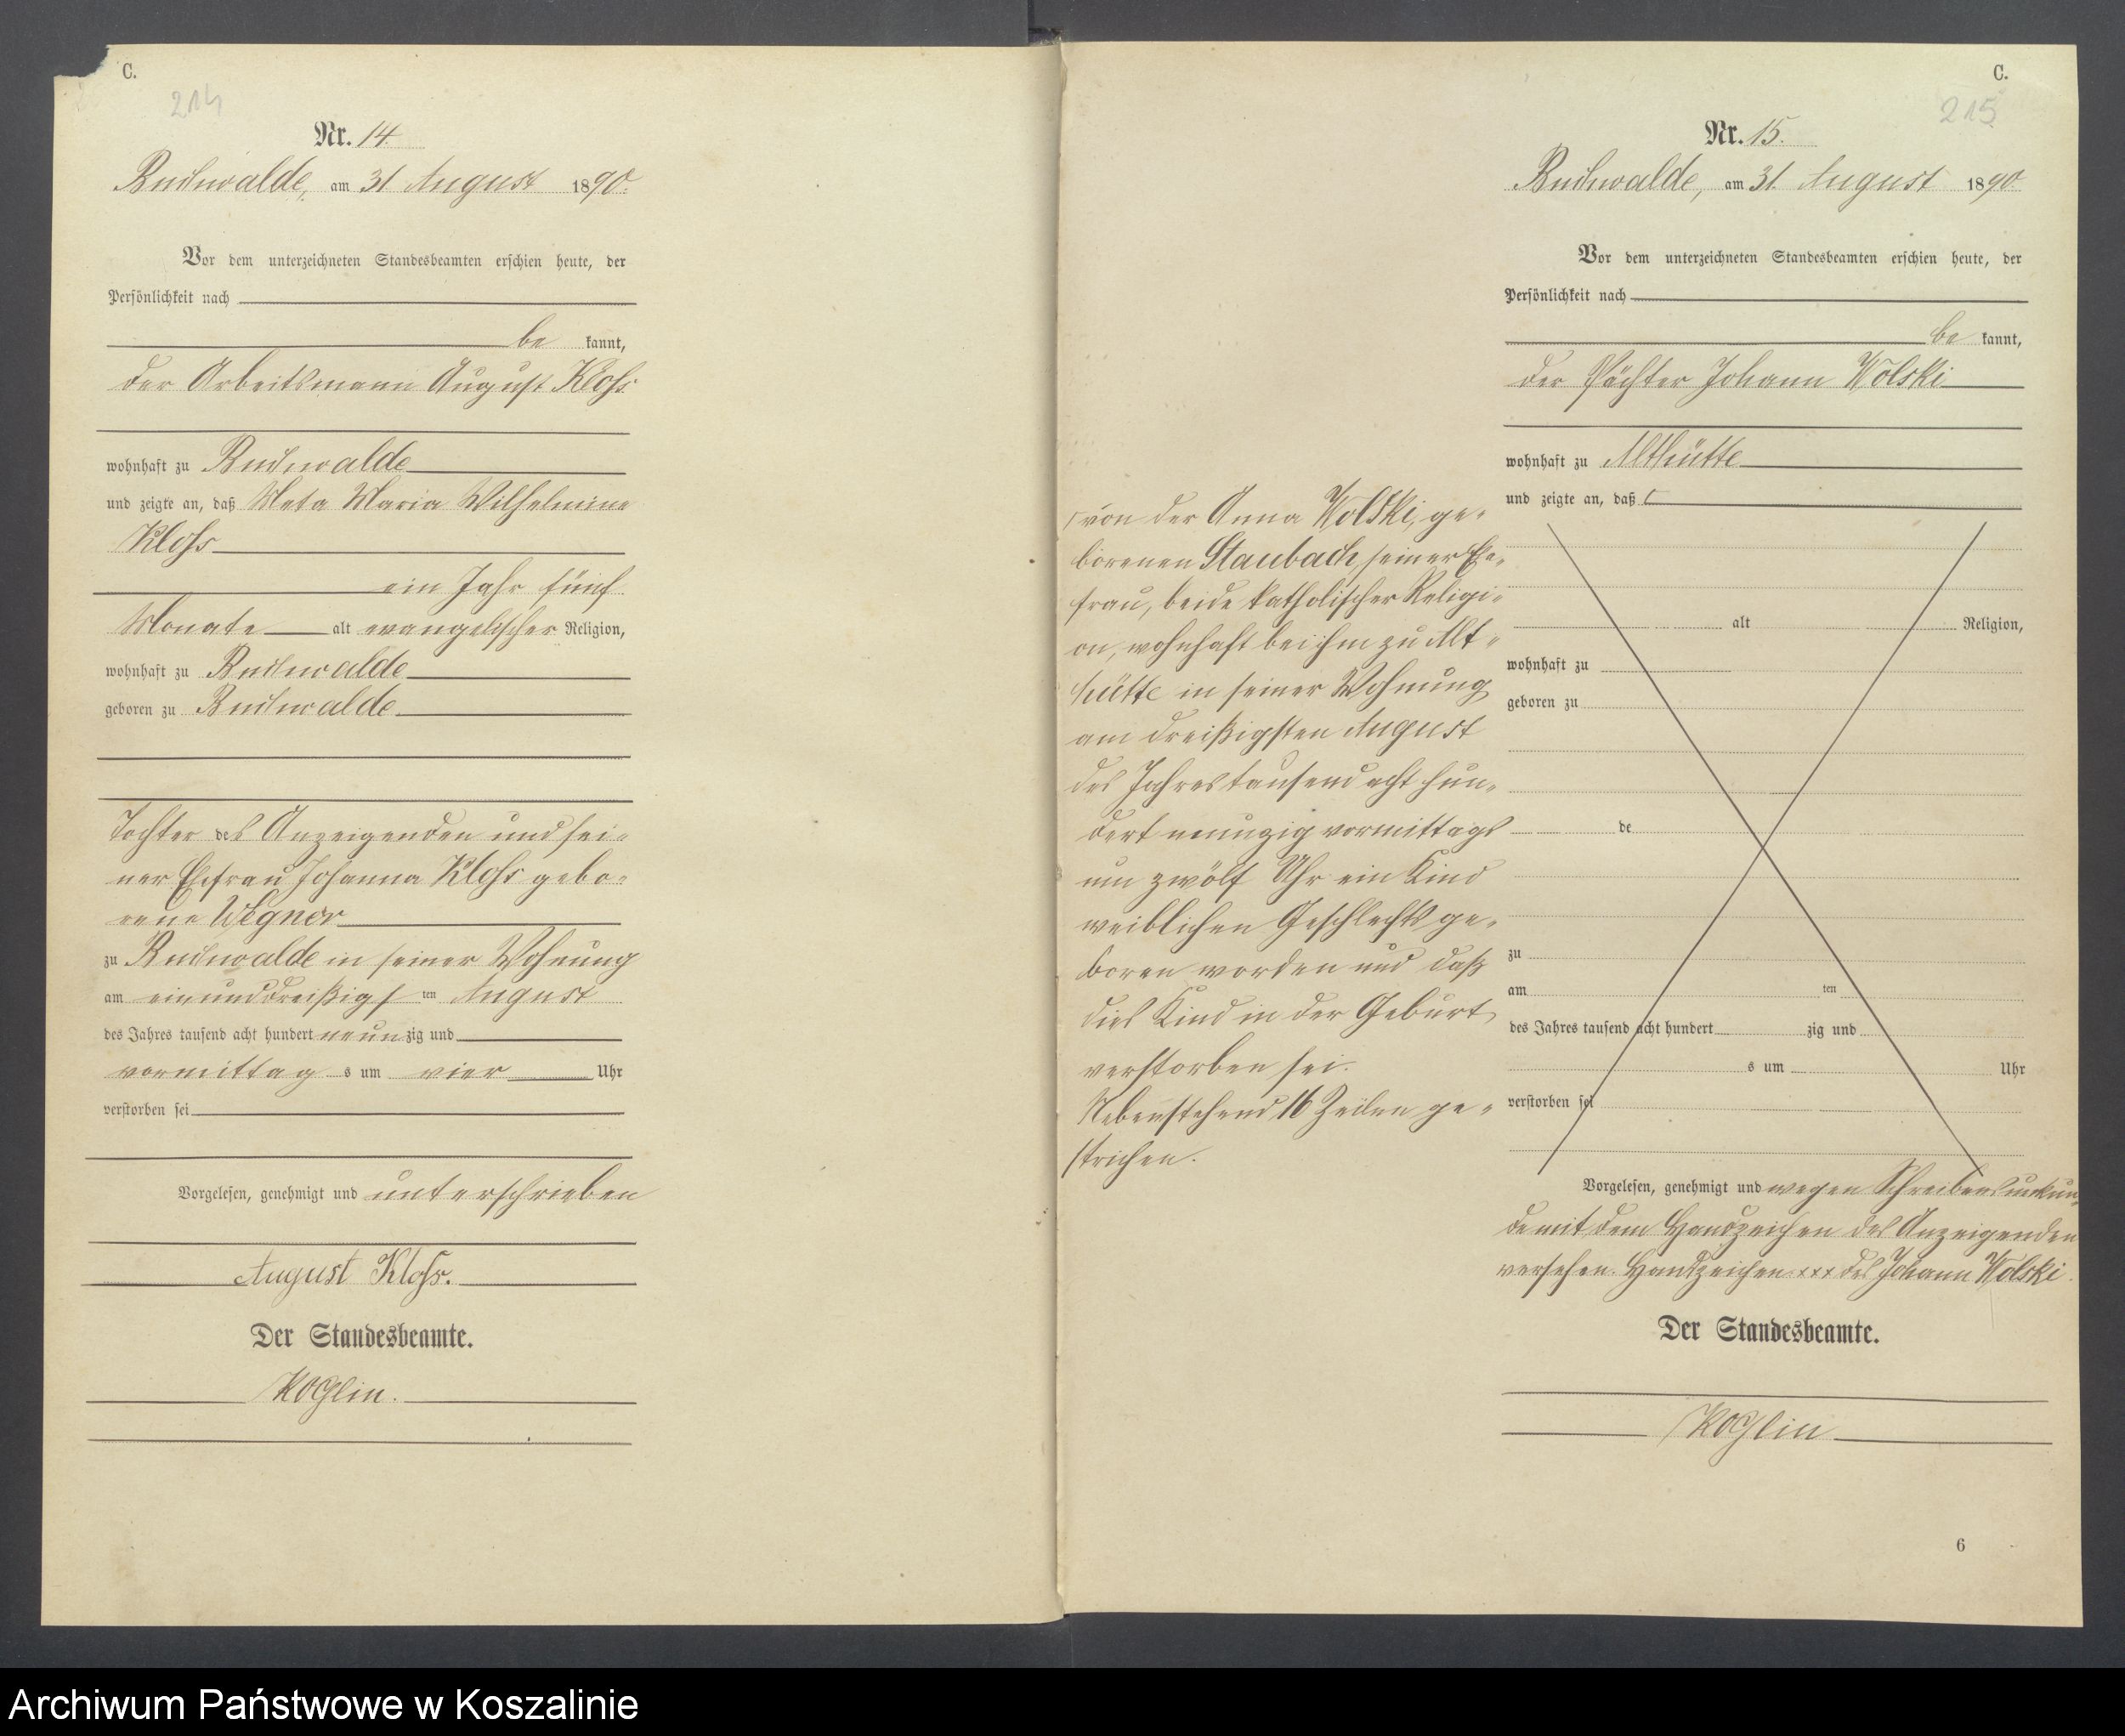 C.
214
Nr. 14.
Buchwalde, am 31 August 1890.
Vor dem unterzeichneten Standesbeamten erschien heute, der
Persönlichkeit nach
be kannt,
der Arbeitsmann August Kloß
wohnhaft zu Buchwalde
und zeigte an, daß Meta Maria Wilhelmine
Kloß
ein Jahr fünf
Monate alt evangelischer Religion,
wohnhaft zu Buchwalde
geboren zu Buchwalde
Tochter des Anzeigenden und sei-
ner Ehefrau Johanna Kloß gebo-
rene Wegner
zu Buchwalde in seiner Wohnung
am einunddreißigsten August
des Jahres tausend acht hundert neunzig und
vormittags um vier Uhr
verstorben sei
Vorgelesen, genehmigt und unterschrieben
August Kloß.
Der Standesbeamte.
Koglin.
C.
215
Nr. 15.
Buchwalde, am 31. August 1890
Vor dem unterzeichneten Standesbeamten erschien heute, der
Persönlichkeit nach
be kannt,
der Pächter Johann Wolski
wohnhaft zu Althütte
und zeigte an, daß
von der Anna Wolski, ge-
borenen Staubach, seiner Ehe-
frau, beide katholischer Religi-
on, wohnhaft bei ihm zu Alt-
hütte in seiner Wohnung
am dreißigsten August
des Jahres tausend acht hun-
dert neunzig vormittags
um zwölf Uhr ein Kind
weiblichen Geschlechts ge-
boren worden und daß
dies Kind in der Geburt
verstorben sei.
Nebenstehend 16 Zeilen ge-
strichen.
alt Religion,
wohnhaft zu
geboren zu
de
zu
am ten
des Jahres tausend acht hundert zig und
s um Uhr
verstorben sei
Vorgelesen, genehmigt und wegen Schreibensunkun-
de mit dem Handzeichen des Anzeigenden
versehen. Handzeichen xxx des Johann Wolski.
Der Standesbeamte.
Koglin
6
Archiwum Państwowe w Koszalinie